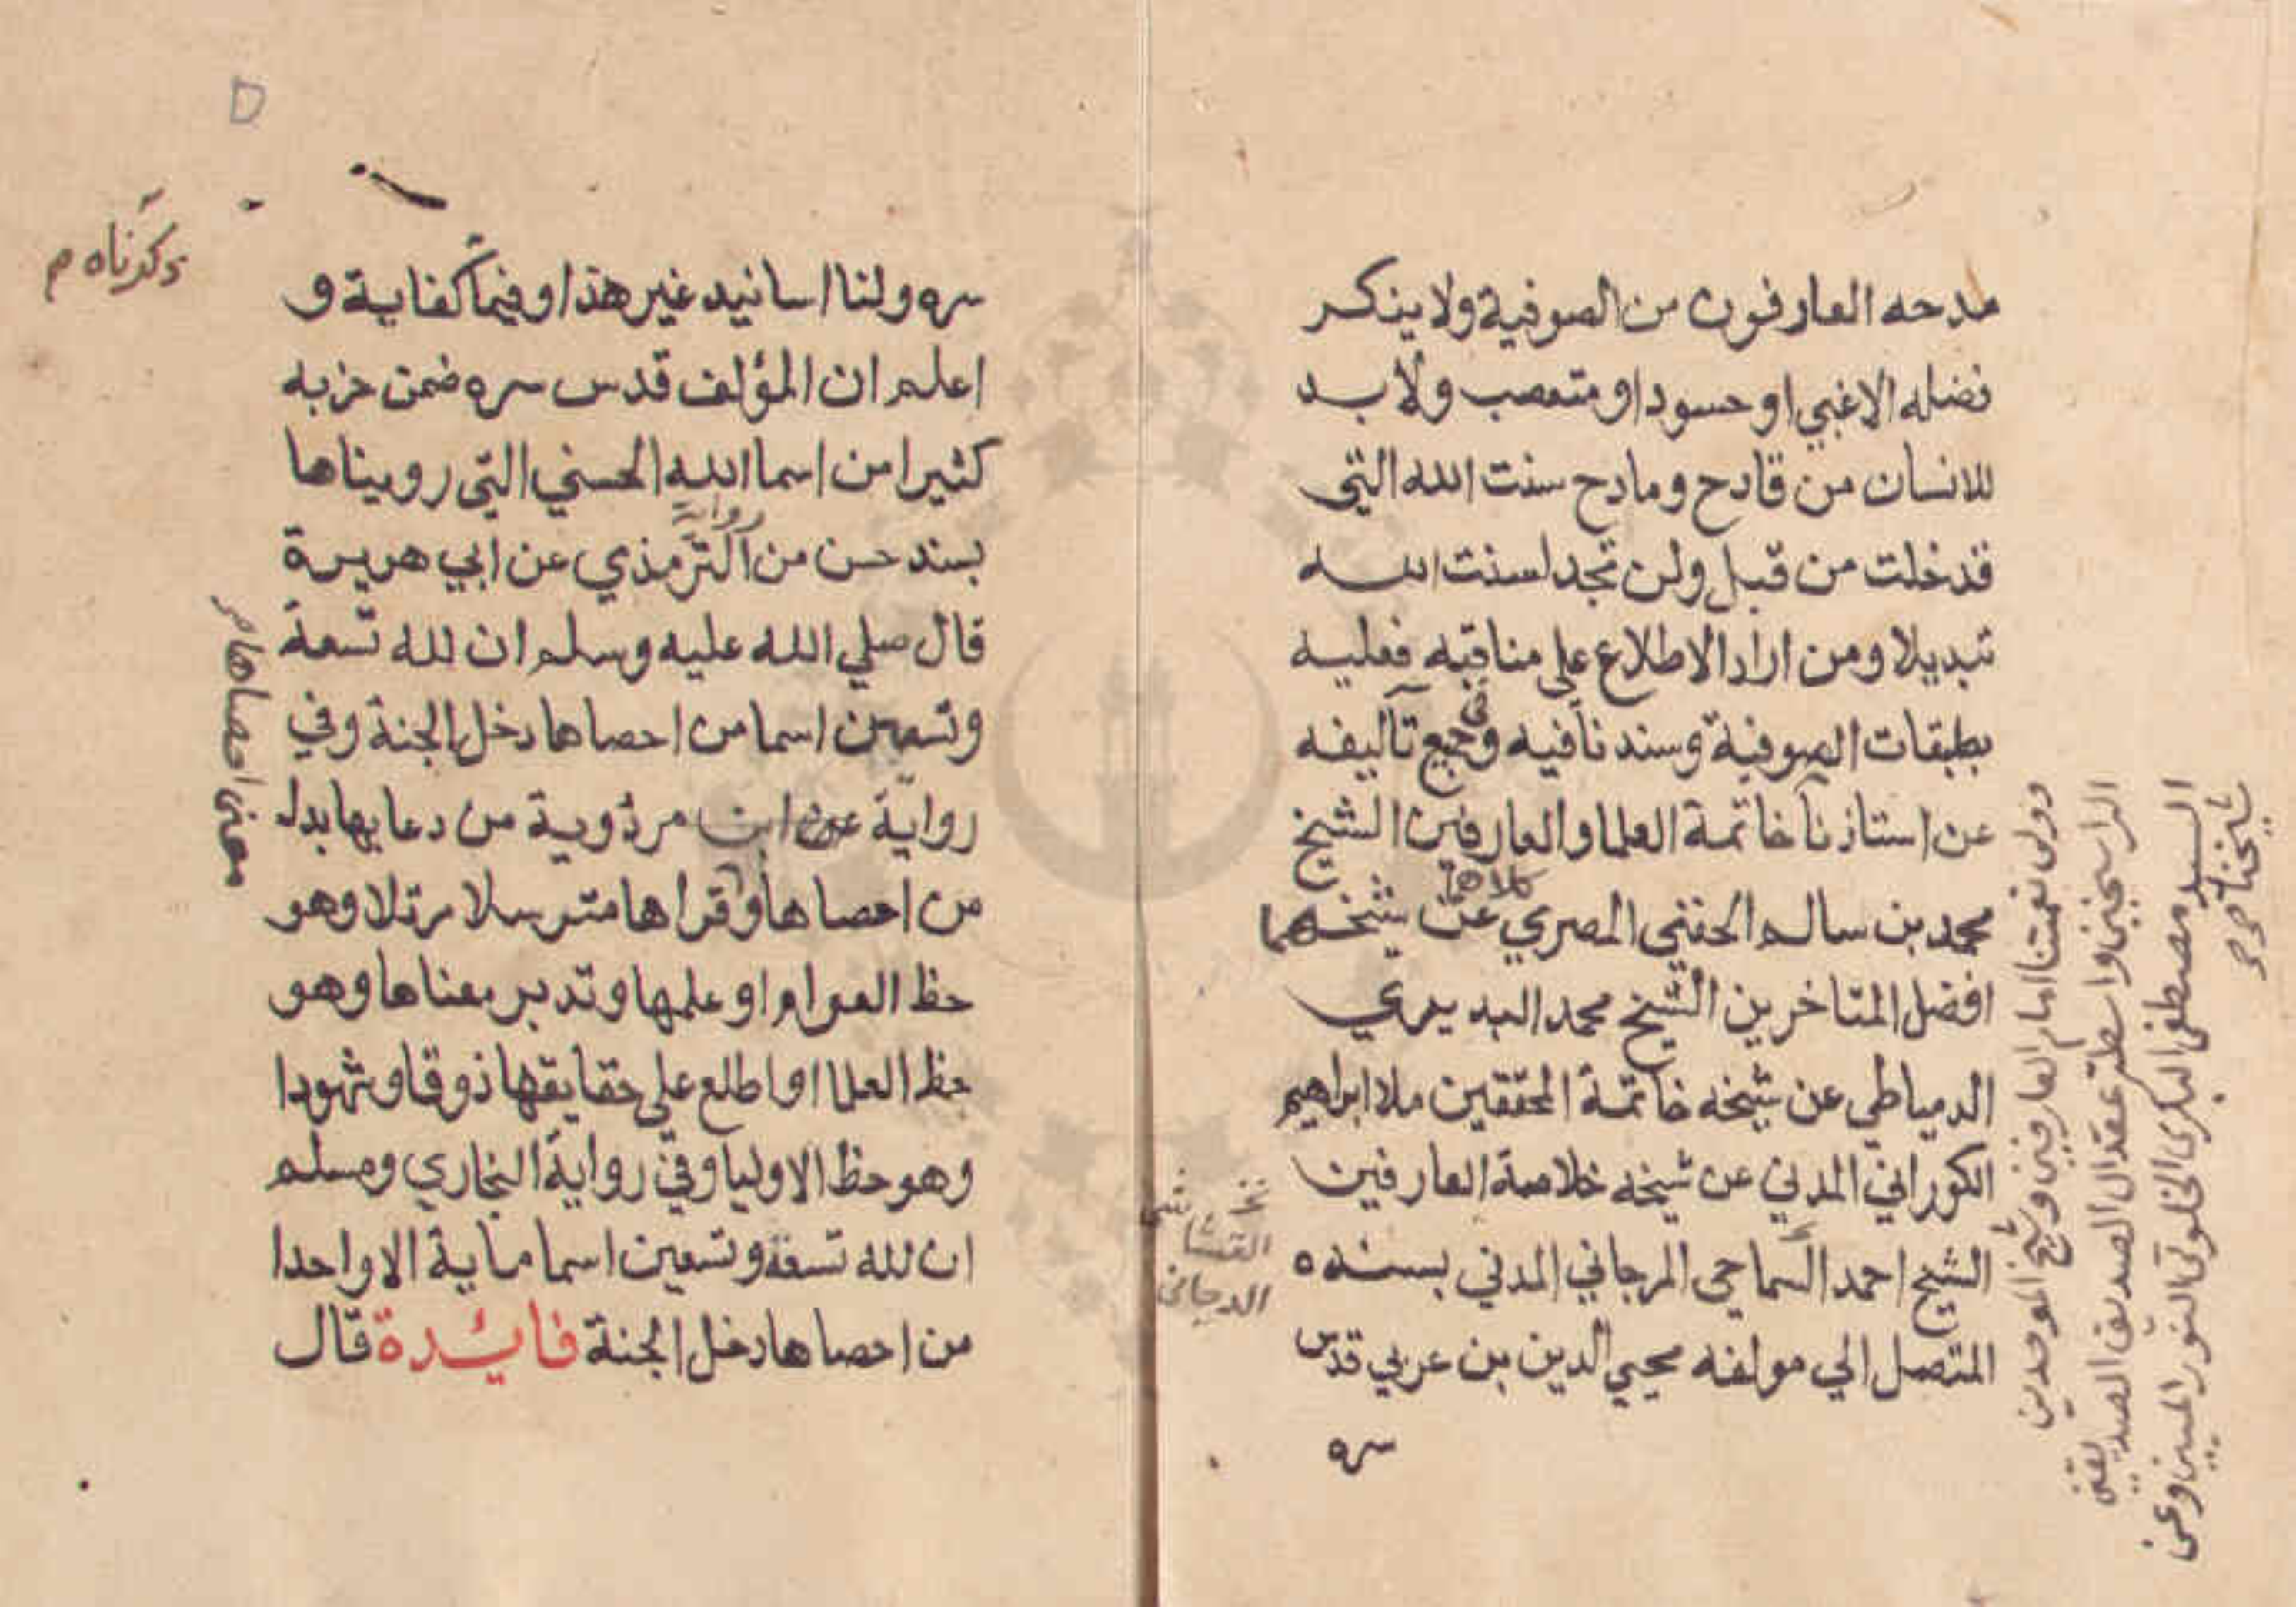 مدحه العارفون من الصوفية ولا ينكر
فضله الا غبي او حسود او متعصب ولا بد
للانسان من قادح ومادح سنت الله التي
قد خلت من قبل ولن تجد لسنت الله
تبديلا ومن اراد الاطلاع علي مناقبه فعليه
بطبقات الصوفية وسندنا فيه وفي جميع تآليفه
عن استاذنا خاتمة العلما والعارفين الشيخ
محمد بن سالم الحفني المصري كلاهما عن شيخهما
افضل المتاخرين الشيخ محمد البديري
الدمياطي عن شيخه خاتمة المحققين ملا ابراهيم
الكوراني المدني عن شيخه خلاصة العارفين
الشيخ احمد المرجاني المدني بسنده
المتصل الي مولفه محيي الدين بن عربي قدس
سره
وولي نعمتنا امام العارفين وشيخ الموحدين
الراسخين واسطة عقد ال الصديق
السيد مصطفى البكري الخلوتي المبين وعن
شيخنا
القشاشي
الدجاني
سره ولنا اسانيد غير هذا وفيما كفاية و
ذكرناه م
اعلم ان المؤلف قدس سره ضمن حزبه
كثيرا من اسما الله الحسني التي رويناها
بسند حسن من رواية الترمذي عن ابي هريرة
قال صلي الله عليه وسلم ان لله تسعة
وتسعين اسما من احصاها دخل الجنة وفي
رواية عن ابن مردوية من دعا بها بدل
من احصاها او قراها مترسلا مرتلا وهو
حظ العوام او علمها وتدبر معناها وهو
حظ العلما او اطلع علي حقايقها ذوقا وشهودا
وهو حظ الاوليا وفي رواية البخاري ومسلم
ان لله تسعة وتسعين اسما ماية الا واحدا
من احصاها دخل الجنة فايدة قال
معنى احصاها م